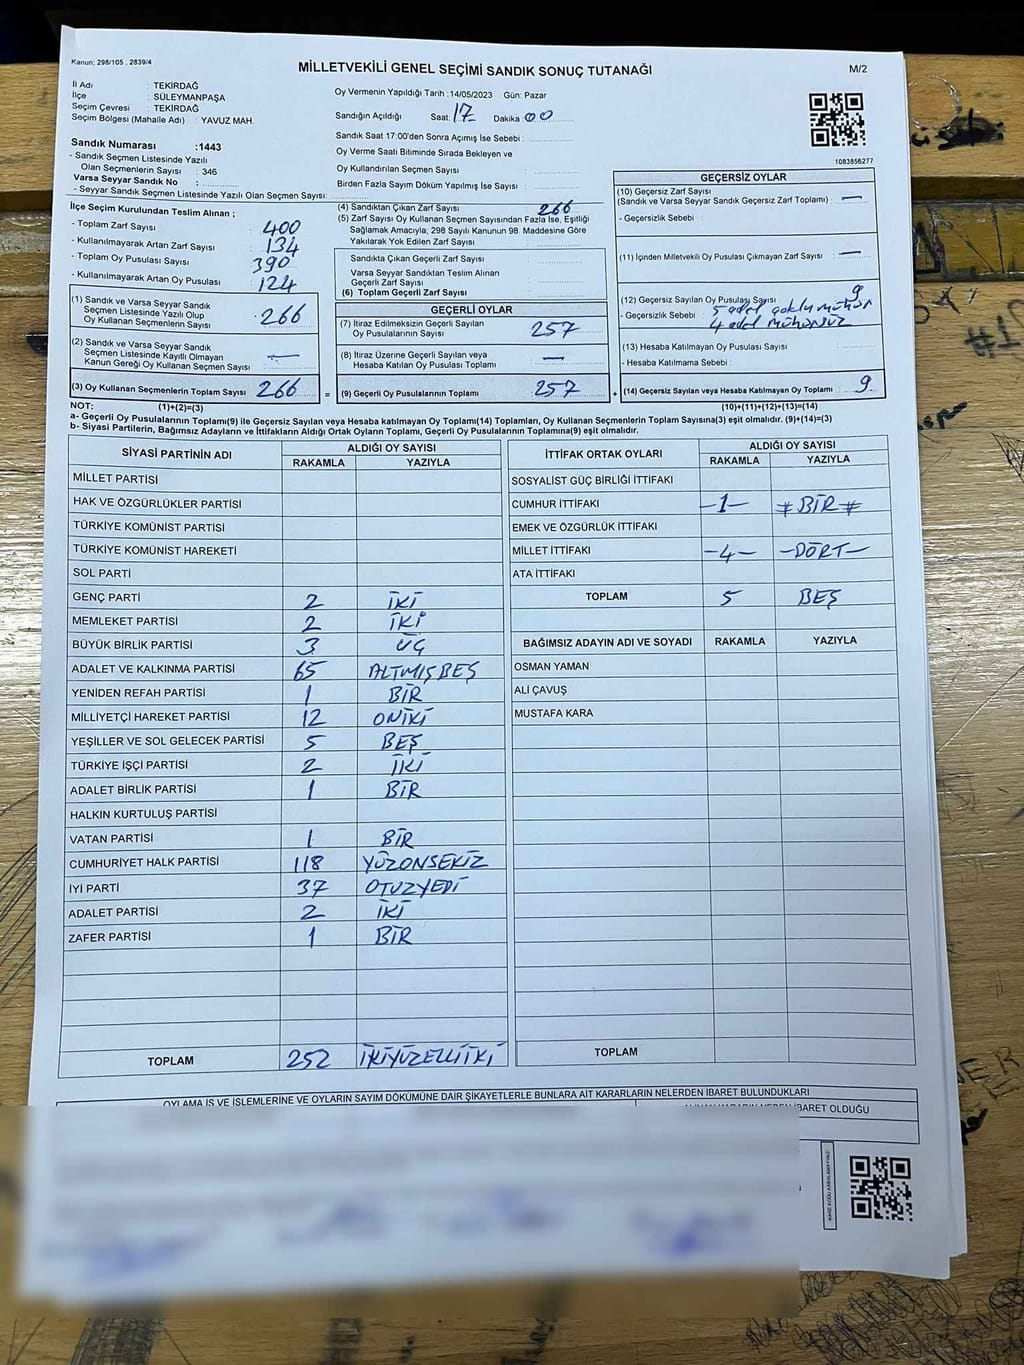 Kanun; 298/105 , 2839/4
MİLLETVEKİLİ GENEL SEÇİMİ SANDIK SONUÇ TUTANAĞI
M/2
İl Adı : TEKİRDAĞ
İlçe : SÜLEYMANPAŞA
Seçim Çevresi : TEKİRDAĞ
Seçim Bölgesi (Mahalle Adı) : YAVUZ MAH.
Sandık Numarası :1443
- Sandık Seçmen Listesinde Yazılı
Olan Seçmenlerin Sayısı : 346
Varsa Seyyar Sandık No :
- Seyyar Sandık Seçmen Listesinde Yazılı Olan Seçmen Sayısı:
Oy Vermenin Yapıldığı Tarih : 14/05/2023 Gün: Pazar
Sandığın Açıldığı Saat: 17 Dakika : 00
Sandık Saat 17:00'den Sonra Açımış İse Sebebi :
Oy Verme Saati Bitiminde Sırada Bekleyen ve
Oy Kullandırılan Seçmen Sayısı
Birden Fazla Sayım Döküm Yapılmış İse Sayısı :
1083856277
İlçe Seçim Kurulundan Teslim Alınan ;
- Toplam Zarf Sayısı : 400
- Kullanılmayarak Artan Zarf Sayısı : 134
- Toplam Oy Pusulası Sayısı : 390
- Kullanılmayarak Artan Oy Pusulası : 124
(1) Sandık ve Varsa Seyyar Sandık
Seçmen Listesinde Yazılı Olup
Oy Kullanan Seçmenlerin Sayısı : 266
(2) Sandık ve Varsa Seyyar Sandık
Seçmen Listesinde Kayıtlı Olmayan
Kanun Gereği Oy Kullanan Seçmen Sayısı : —
(3) Oy Kullanan Seçmenlerin Toplam Sayısı : 266
(4) Sandıktan Çıkan Zarf Sayısı : 266
(5) Zarf Sayısı Oy Kullanan Seçmen Sayısından Fazla İse, Eşitliği
Sağlamak Amacıyla; 298 Sayılı Kanunun 98. Maddesine Göre
Yakılarak Yok Edilen Zarf Sayısı :
Sandıkta Çıkan Geçerli Zarf Sayısı :
Varsa Seyyar Sandıktan Teslim Alınan
Geçerli Zarf Sayısı :
(6) Toplam Geçerli Zarf Sayısı :
GEÇERLİ OYLAR
(7) İtiraz Edilmeksizin Geçerli Sayılan
Oy Pusulalarının Sayısı : 257
(8) İtiraz Üzerine Geçerli Sayılan veya
Hesaba Katılan Oy Pusulası Toplamı : —
= (9) Geçerli Oy Pusulalarının Toplamı : 257
GEÇERSİZ OYLAR
(10) Geçersiz Zarf Sayısı
(Sandık ve Varsa Seyyar Sandık Geçersiz Zarf Toplamı) : —
- Geçersizlik Sebebi :
(11) İçinden Milletvekili Oy Pusulası Çıkmayan Zarf Sayısı : —
(12) Geçersiz Sayılan Oy Pusulası Sayısı : 9
- Geçersizlik Sebebi : 5 adet çoklu mühür
4 adet mühürsüz
(13) Hesaba Katılmayan Oy Pusulası Sayısı :
- Hesaba Katılmama Sebebi :
+ (14) Geçersiz Sayılan veya Hesaba Katılmayan Oy Toplamı : 9
NOT: (1)+(2)=(3)
(10)+(11)+(12)+(13)=(14)
a- Geçerli Oy Pusulalarının Toplamı(9) ile Geçersiz Sayılan veya Hesaba katılmayan Oy Toplamı(14) Toplamları, Oy Kullanan Seçmenlerin Toplam Sayısına(3) eşit olmalıdır. (9)+(14)=(3)
b- Siyasi Partilerin, Bağımsız Adayların ve İttifakların Aldığı Ortak Oyların Toplamı, Geçerli Oy Pusulalarının Toplamına(9) eşit olmalıdır.
SİYASİ PARTİNİN ADI ALDIĞI OY SAYISI
RAKAMLA YAZIYLA
MİLLET PARTİSİ
HAK VE ÖZGÜRLÜKLER PARTİSİ
TÜRKİYE KOMÜNİST PARTİSİ
TÜRKİYE KOMÜNİST HAREKETİ
SOL PARTİ
GENÇ PARTİ 2 İKİ
MEMLEKET PARTİSİ 2 İKİ
BÜYÜK BİRLİK PARTİSİ 3 ÜÇ
ADALET VE KALKINMA PARTİSİ 65 ALTMIŞBEŞ
YENİDEN REFAH PARTİSİ 1 BİR
MİLLİYETÇİ HAREKET PARTİSİ 12 ONİKİ
YEŞİLLER VE SOL GELECEK PARTİSİ 5 BEŞ
TÜRKİYE İŞÇİ PARTİSİ 2 İKİ
ADALET BİRLİK PARTİSİ 1 BİR
HALKIN KURTULUŞ PARTİSİ
VATAN PARTİSİ 1 BİR
CUMHURİYET HALK PARTİSİ 118 YÜZONSEKİZ
İYİ PARTİ 37 OTUZYEDİ
ADALET PARTİSİ 2 İKİ
ZAFER PARTİSİ 1 BİR
TOPLAM 252 İKİYÜZELLİİKİ
İTTİFAK ORTAK OYLARI ALDIĞI OY SAYISI
RAKAMLA YAZIYLA
SOSYALİST GÜÇ BİRLİĞİ İTTİFAKI
CUMHUR İTTİFAKI —1— # BİR #
EMEK VE ÖZGÜRLÜK İTTİFAKI
MİLLET İTTİFAKI —4— —DÖRT—
ATA İTTİFAKI
TOPLAM 5 BEŞ
BAĞIMSIZ ADAYIN ADI VE SOYADI RAKAMLA YAZIYLA
OSMAN YAMAN
ALİ ÇAVUŞ
MUSTAFA KARA
TOPLAM
OYLAMA İŞ VE İŞLEMLERİNE VE OYLARIN SAYIM DÖKÜMÜNE DAİR ŞİKAYETLERLE BUNLARA AİT KARARLARIN NELERDEN İBARET BULUNDUKLARI
ALINAN KARARIN NEDEN İBARET OLDUĞU